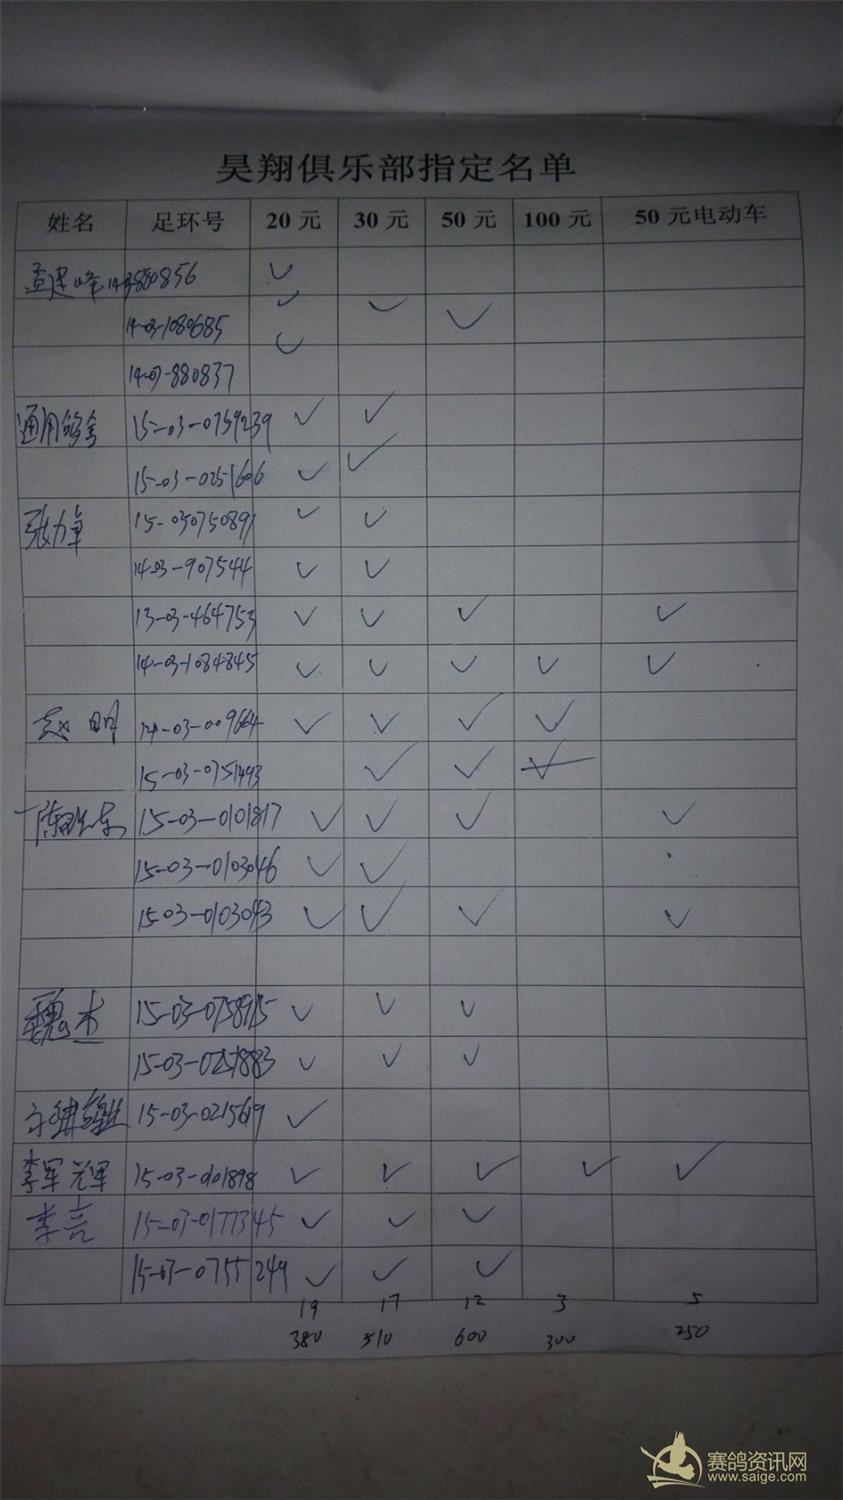 昊翔俱乐部指定名单
姓名 足环号 20元 30元 50元 100元 50元电动车
孟建峰 14-03-880856 ✓
14-03-1080685 ✓ ✓ ✓
14-03-880837 ✓
通用鸽舍 15-03-0759239 ✓ ✓
15-03-0251606 ✓ ✓
张力卓 15-030750891 ✓ ✓
14-03-907544 ✓ ✓
13-03-464753 ✓ ✓ ✓ ✓
14-03-1084845 ✓ ✓ ✓ ✓ ✓
赵明 14-03-009664 ✓ ✓ ✓ ✓
15-03-0751493 ✓ ✓
15-03-0101817 ✓ ✓ ✓ ✓
15-03-0103046 ✓ ✓
15-03-0103043 ✓ ✓ ✓ ✓
魏杰 15-03-0758915 ✓ ✓ ✓
15-03-0251883 ✓ ✓ ✓
15-03-0215619 ✓
李军 15-03-0101898 ✓ ✓ ✓ ✓ ✓
李亮 15-03-0177345 ✓ ✓ ✓
15-03-0755249 ✓ ✓ ✓
19 17 12 3 5
380 510 600 300 250
赛鸽资讯网
www.saige.com